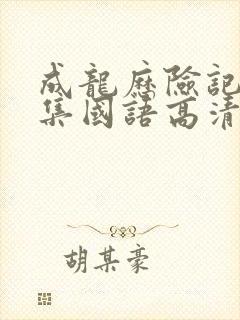 成龍歷險記
集國語高清
胡某豪